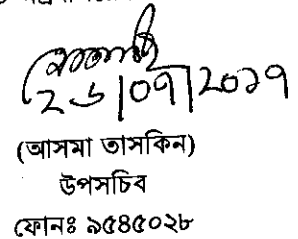 ২৬|০৭|২০১৭
(আসমা তাসকিন)
উপসচিব
ফোনঃ ৯৫৪৫০২৮